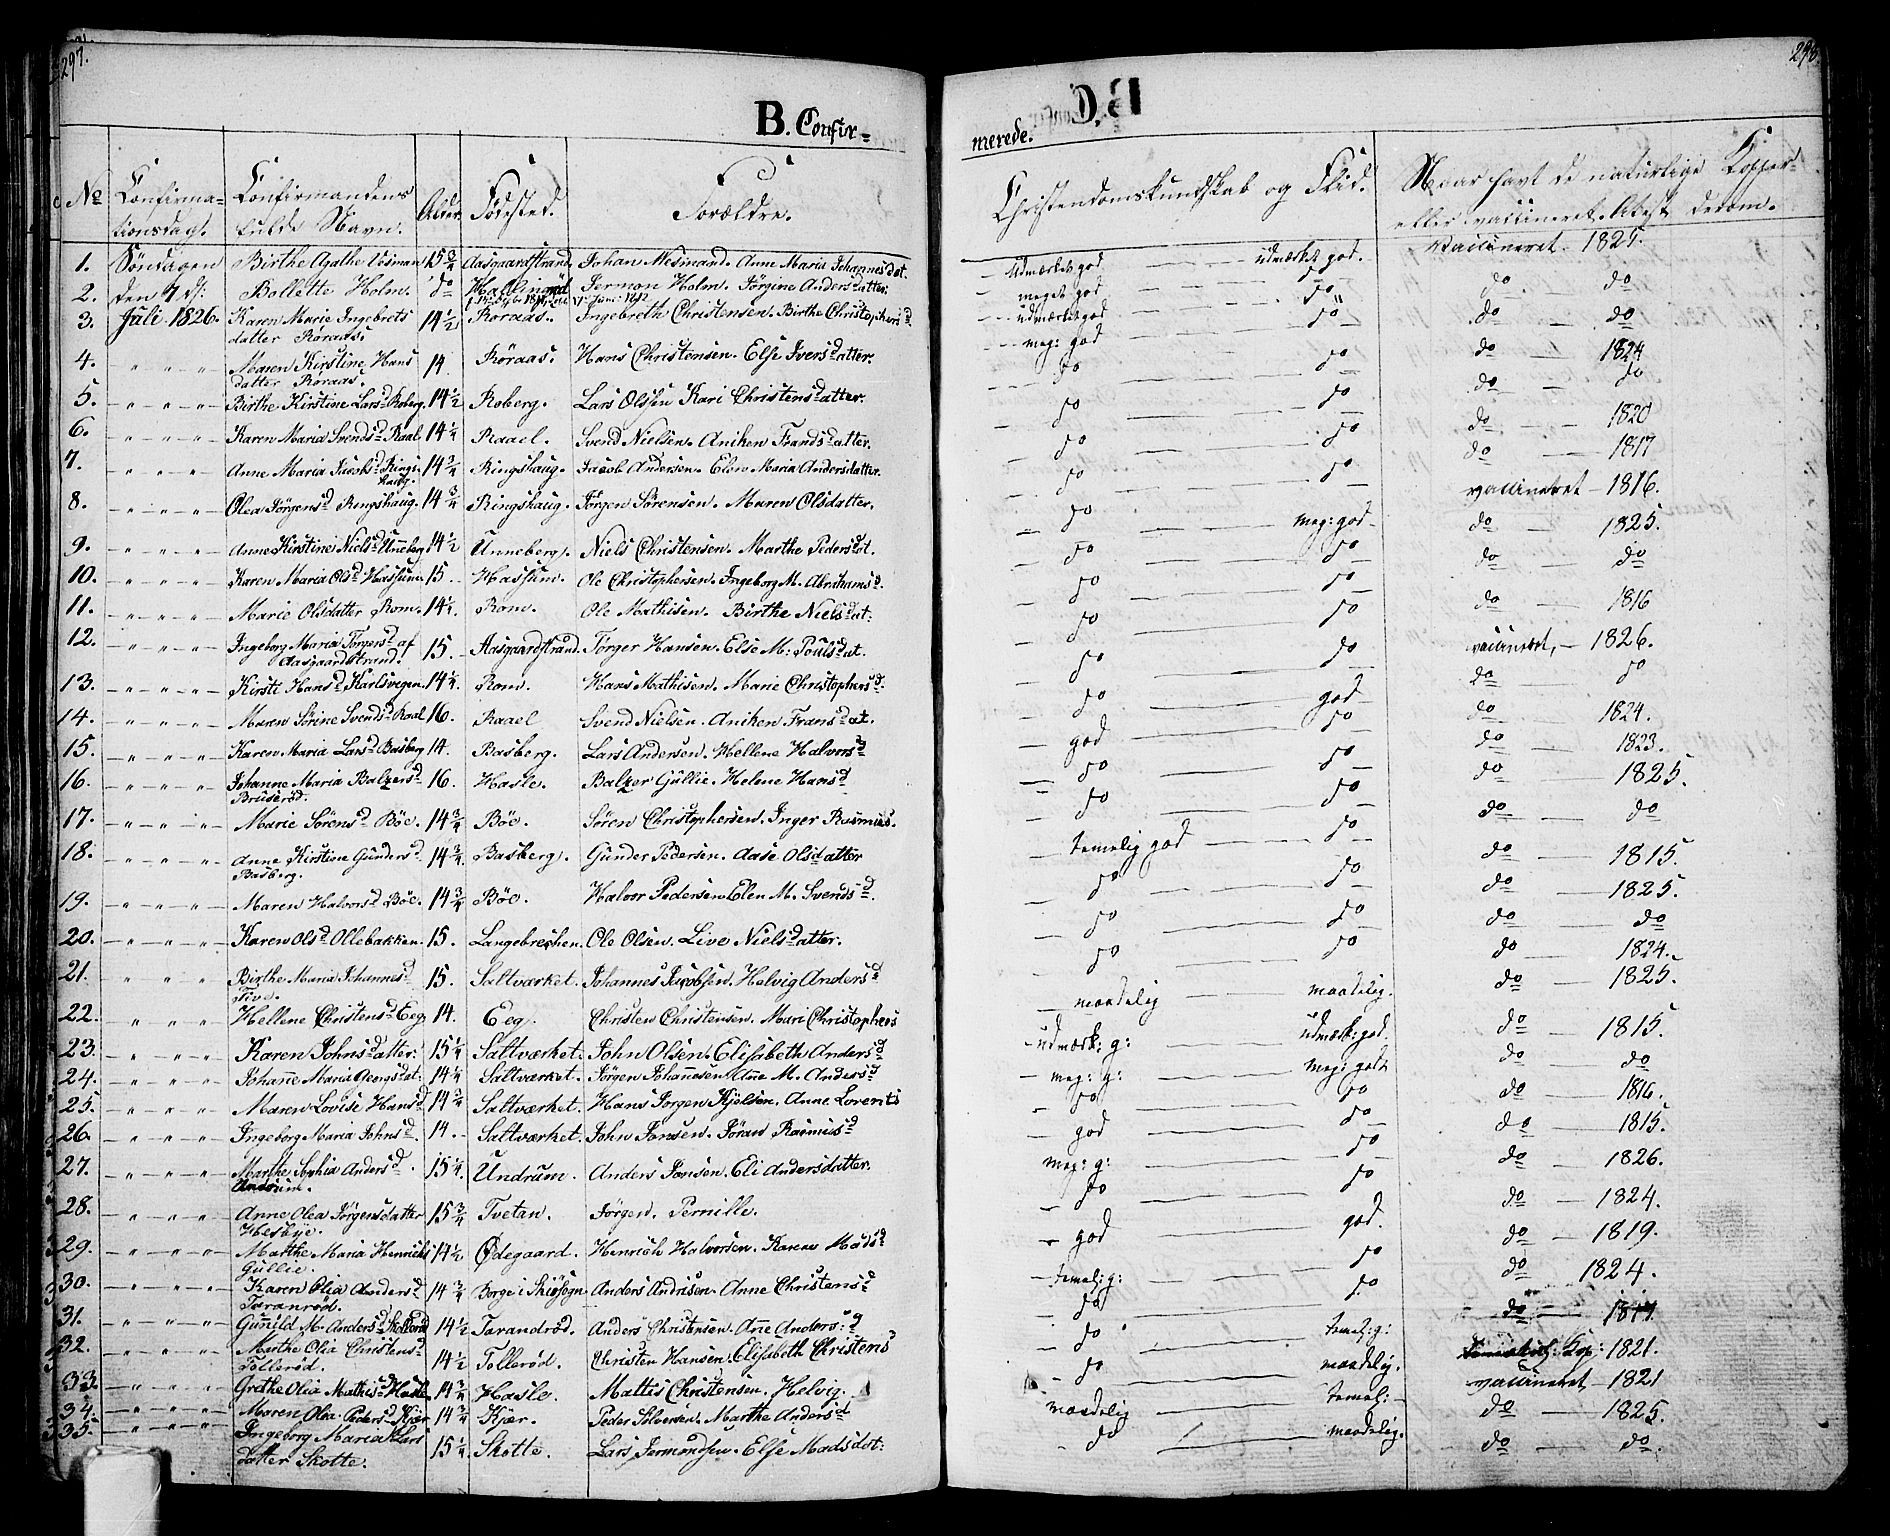 297.
B. Confir=
No
Confirma-
tionsdag.
Confirmandens
fulde Navn.
Alder
Fødested.
Forældre.
1. Søndagen Birthe Agathe 15 3/4 Aasgaardstrand. Johan Mesinand. Anne Maria Johannesdat.
2. den 7 d: Bollette Holm. do Hallingrød Jermon Holm. Jørgine Andersdatter.
3. Juli 1826. Karen Marie Ingebrets 14 1/2 Røraas. Ingebreth Christensen. Birthe Christophersd
datter Røraas.
4. " " " Maren Kirstine Hans 14. Røraas. Hans Christensen. Else Iversdatter.
datter Røraas.
5. " " " Birthe Kirstine Larsd Roberg. 14 1/2 Roberg. Lars Olsen Kari Christensdatter.
6. " " " Karen Maria Svendsd Raael 14 1/4 Raael. Svend Nielsen. Aniken Frandsdatter.
7. " " " Anne Maria Jacobsd Rings 14 3/4 Ringshaug. Jacob Andersen. Elen Maria Andersdatter.
haug.
8. " " " Olea Jørgensd Ringshaug. 14 3/4 Ringshaug. Jørgen Sørensen. Maren Olsdatter.
9. " " " Anne Kirstine Nielsd Unneberg 14 1/2 Unneberg. Niels Christensen. Marthe Pedersdt.
10. " " " Karen Maria Olsd Hassum. 15. Hassum. Ole Christophersen. Ingeborg M. Abrahamsd.
11. " " " Marie Olsdatter Rom. 14 1/4. Rom. Ole Mathisen. Birthe Nielsdat:
12. " " " Ingeborg Maria Torgersd af 15. Aasgaardstrand. Torger Hansen. Else M: Poulsdat.
Aasgaardstrand.
13. " " " Kirsti Hansd Karlsvegen. 14 1/4. Rom. Hans Mathisen. Marie Christophersd.
14. " " " Maren Sørine Svendsd Raael 16. Raael Svend Nielsen. Aniken Fransdat.
15. " " " Karen Maria Larsd Basberg 14. Basberg. Lars Andersen. Hellene Halvorsd
16. " " " Johanne Maria Balzersd 16. Hasle. Balzer Gullie. Helene Hansd
Bruserød.
17. " " " Marie Sørensd Bøe. 14 3/4 Bøe. Søren Christophersen. Inger Rasmus.
18. " " " Anne Kirstine Gundersd 14 3/4. Basberg. Gunder Pedersen. Aase Olsdatter
Basberg.
19. " " " Maren Halvorsd Bøe. 14 3/4 Bøe. Halvor Pedersen Elen M. Svendsd.
20. " " " Karen Olsd Ollebakken. 15. Langebrechen. Ole Olsen. Live Nielsdatter.
21. " " " Birthe Maria Johannesd 15. Saltværket. Johannes Jacobsen. Helvig Andersd
22. " " " Hellene Christensd Eeg 14. Eeg. Christen Christensen. Mari Christophers
23. " " " Karen Johnsdatter: 15 1/4 Saltværket. John Olsen. Elisabeth Andersd
24. " " " Johanne Maria Georgsdt. 14 1/4 Saltværket. Jørgen Johannesen Ane M. Andersd
25. " " " Maren Lovise Hansd 14 3/4 Saltværket. Hans Jørgen Kjelsen. Anne Lorents
26. " " " Ingeborg Maria Johnsd. 14. Saltværket. John Jonsen. Jøran Rasmusd
27. " " " Marthe Sophia Andersd. 15 1/4. Undrum. Anders Jonsen. Eli Andersdatter.
28. " " " Anne Olea Jørgensdatter 15 3/4 Tvetan. Jørgen. Pernille.
Hesbye.
29. " " " Marthe Maria Henrichs 14 1/2 Ødegaard. Henrich Halvorsen. Karen Madsd
Gullie.
30. " " " Karen Olia Andersd 14 3/4 Borge i Anders Andrisen. Anne Christensd
Taranrød.
31. " " " Gunild M. Andersd 14 1/2 Tarandrød. Anders Christensen. Ane Anders: d
32. Marthe Olia Christensd 14 1/2 Tollerød. Christen Hansen. Elisabeth Christens
Tollerød.
33. " " " Grethe Olia Mathisd Hasle. 14 3/4 Hasle. Mattis Christensen. Helvig.
34. " " " Maren Olea Pedersd Kjær 14 3/4 Kjær. Peder Solvesen. Marthe Andersd
35. " " " Ingeborg Maria Lars 15 1/4 Skotte. Lars Jermondsen. Else Madsdat:
datter Skotte.
298
merede.
Christendomskundskab og Flid.
Naar havt de naturlige Kopper
eller vaccineret. Attest derom.
udmærket god — udmærket god. Vaccineret. 1825.
meget god — do do do
udmærket god — do do — do
meg: god — do do — 1824
do — do do — do
do — do do — 1820
do — do do — 1817
do — do vaccineret — 1816.
do — meg: god do — 1825.
do — do do — do
do — do do — 1816
do — do vaccineret, — 1826.
do — do do do
do — god do — 1824.
god — do do — 1823.
do — do do — 1825.
do — do do — do
temelig god — do do — 1815.
do — do do — 1825.
do — do do — do
do — do do — 1824.
do — 1825.
maadelig — maadelig. do — 1815.
udmærk: g: udmærk: god. do — do
meg: g: meg: godt do — 1816.
do — do do — 1815.
god — do do — 1826.
meg: g: do do — 1824.
do — do do — 1819.
god — god. do — 1824.
temel: g: do do
do — do 1821.
do — temel: g: vaccineret — 1821
do — maadelig. do — 1825.
maadelig — temel: do — do.
do — maadelig.